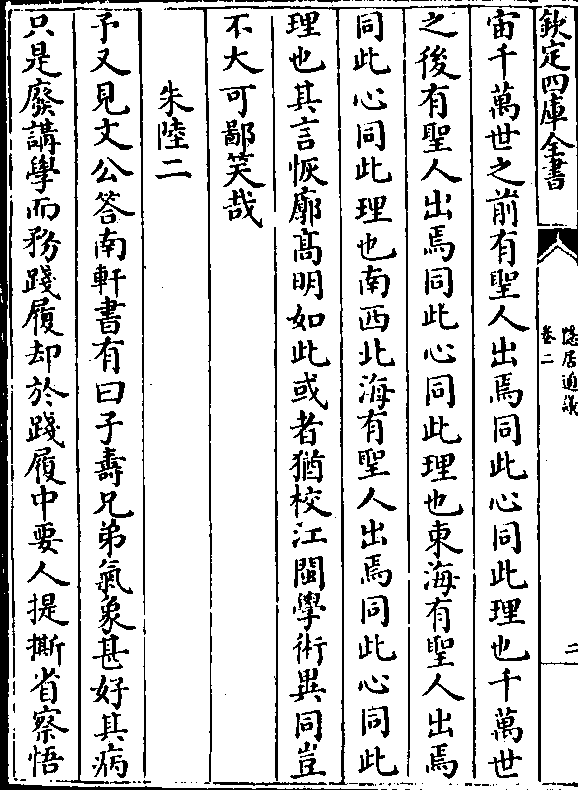 欽定四庫全書
隱居通議
卷二
二
宙千萬世之前有聖人出焉同此心同此理也千萬世
之後有聖人出焉同此心同此理也東海有聖人出焉
同此心同此理也南西北海有聖人出焉同此心同此
理也其言恢廓髙明如此或者猶校江閩學術異同豈
不大可鄙笑哉
朱陸二
予又見文公答南軒書有曰子壽兄弟氣象甚好其病
只是廢講學而務踐履却於踐履中要人提撕省察悟